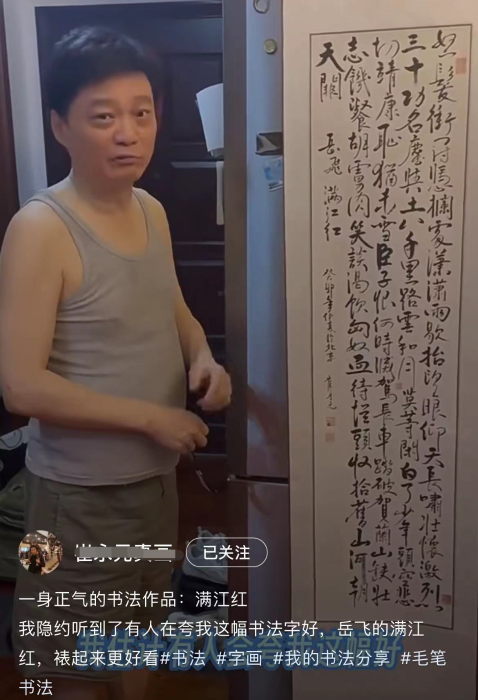 怒髮衝冠憑欄處瀟瀟雨歇抬望眼仰天長嘯壯懷激烈
三十功名塵與土八千里路雲和月莫等閑白了少年頭空悲
切靖康恥猶未雪臣子恨何時滅駕長車踏破賀蘭山缺壯
志饑餐胡虜肉笑談渴飲匈奴血待從頭收拾舊山河朝
天闕 岳飛 滿江红
癸卯年
已关注
一身正气的书法作品：满江红
我隐约听到了有人在夸我这幅书法字好，岳飞的满江
红，裱起来更好看#书法 #字画 #我的书法分享 #毛笔
书法